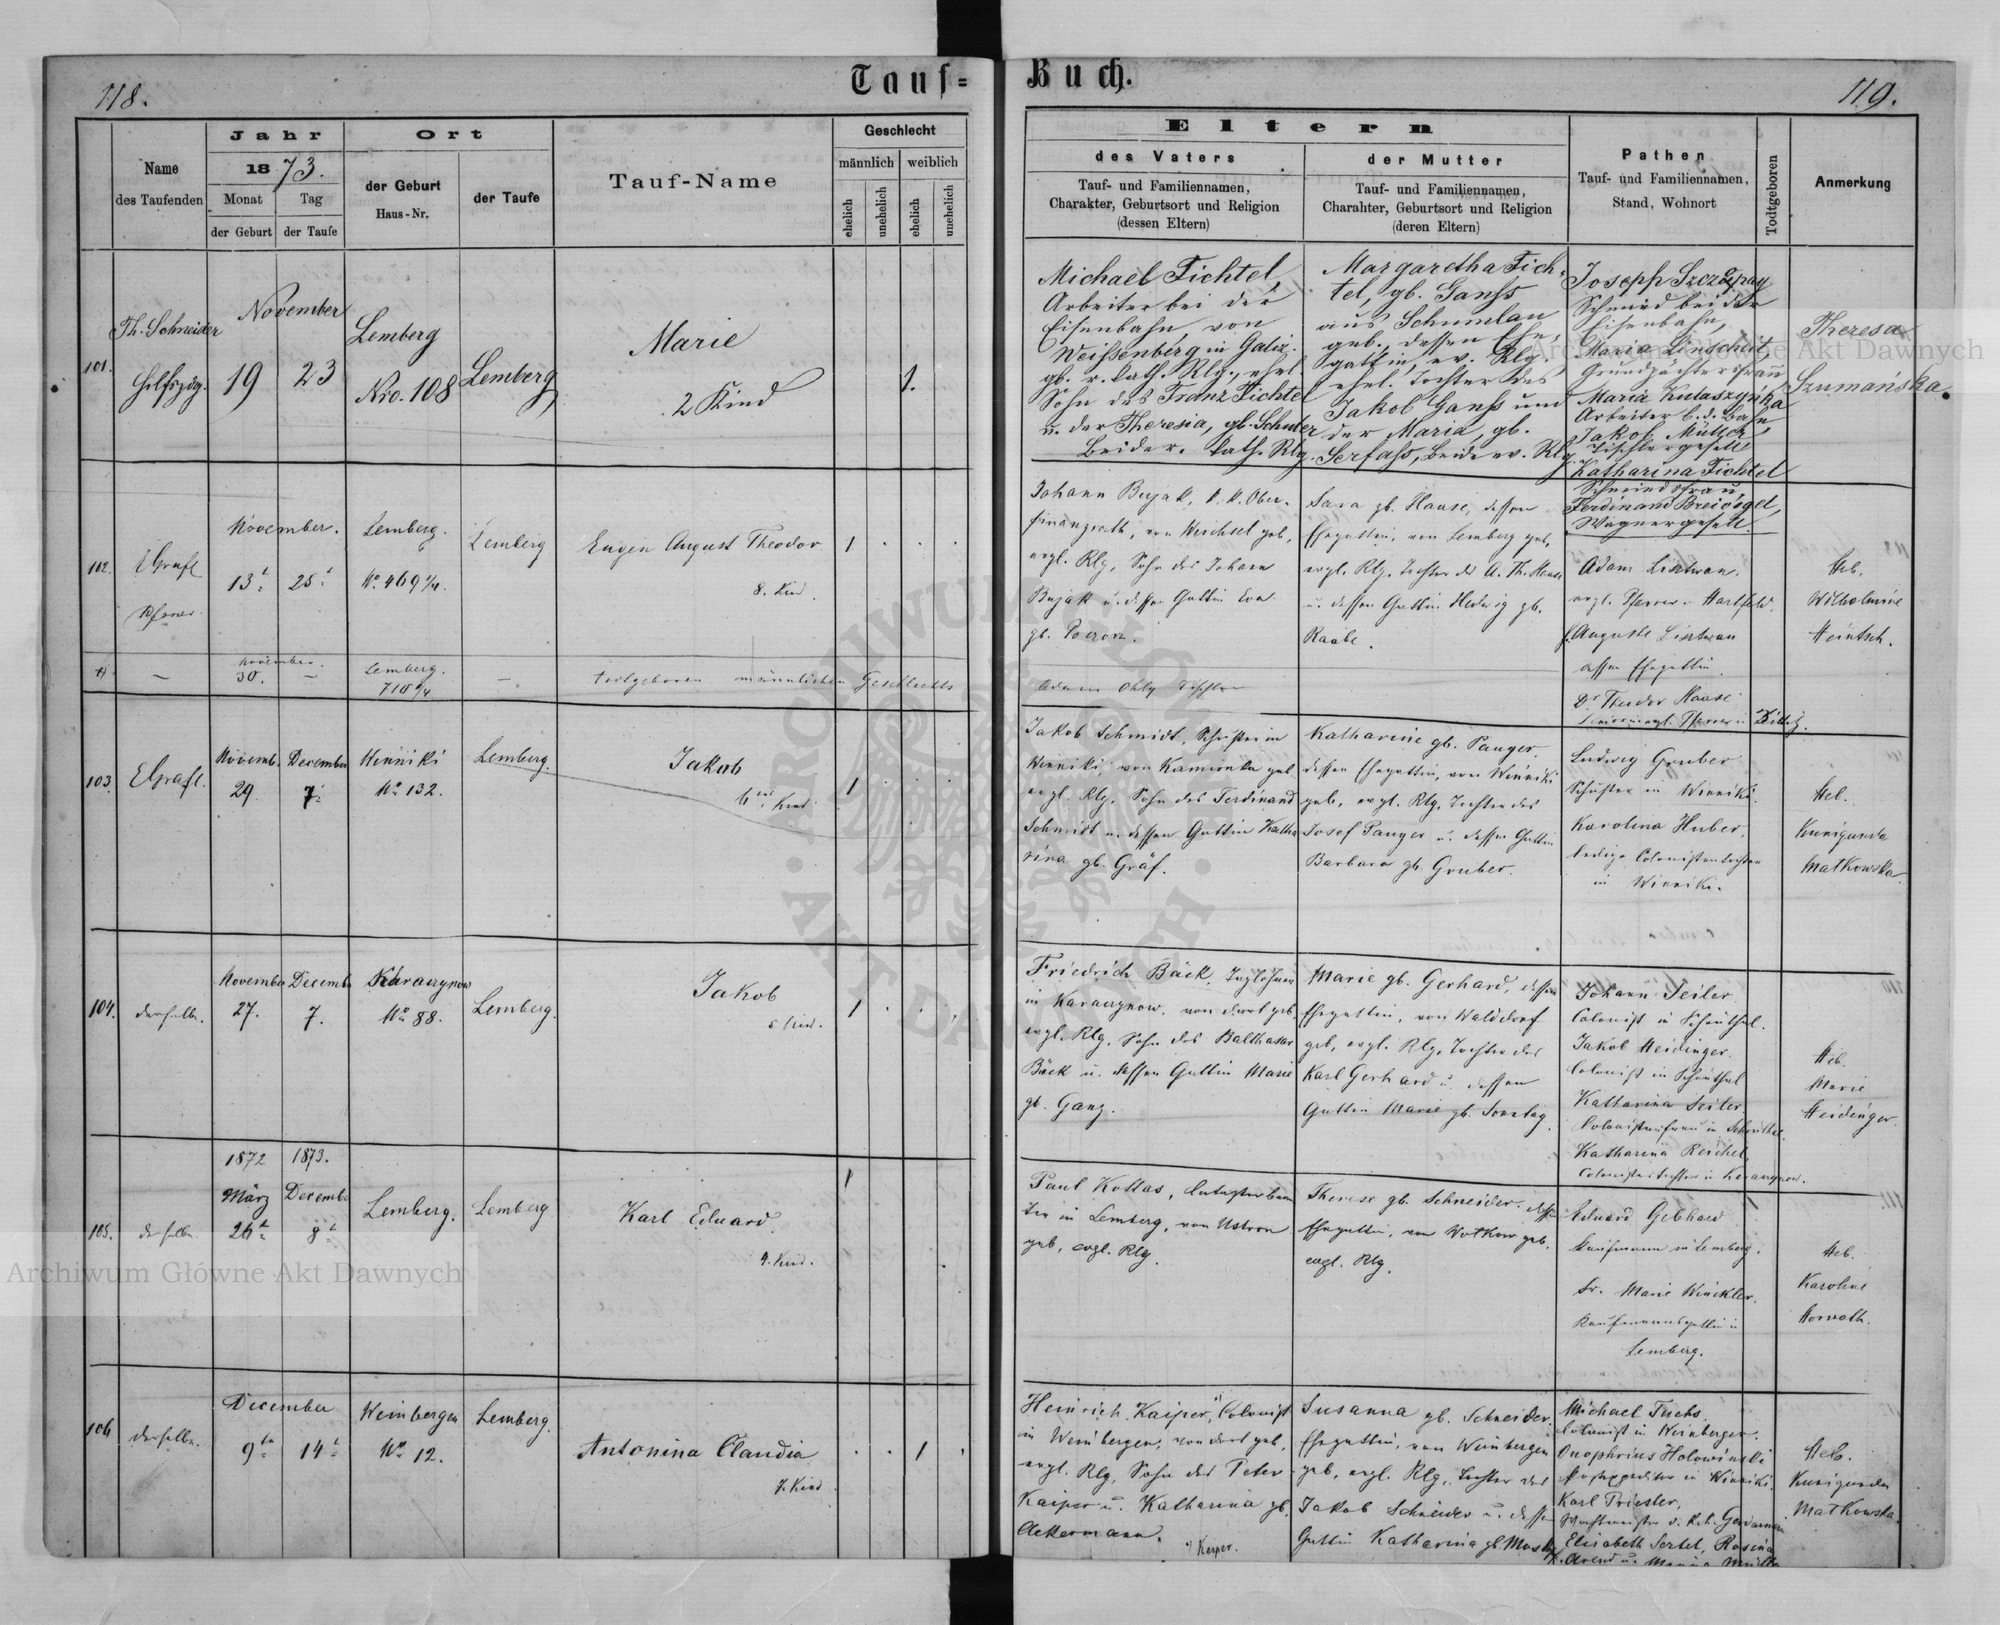 118.
Tauf=
Buch.
119.
Name
des Taufenden
Jahr
1873.
Monat
Tag
der Geburt
der Taufe
Ort
der Geburt
Haus-Nr.
der Taufe
Tauf-Name
Geschlecht
männlich
weiblich
ehelich
unehelich
ehelich
unehelich
Eltern
des Vaters
Tauf- und Familiennamen,
Charakter, Geburtsort und Religion
(dessen Eltern)
der Mutter
Tauf- und Familiennamen,
Charahter, Geburtsort und Religion
(deren Eltern)
Pathen
Tauf- und Familiennamen,
Stand, Wohnort
Todtgeboren
Anmerkung
101.
Th. Schneider
November
19
23
Lemberg
Nro. 108
Lemberg
Marie
2 Kind
1.
Michael Fichtel,
Arbeiter bei der
Eisenbahn, von
Weissenberg in Galiz.
gb. r. kath. Rlg., ehel
Sohn des Franz Fichtel
u. der Theresia, gb. Schuler
Beide r. kath. Rlg.
Margaretha Fich-
tel, gb. Ganss
aus Schumlau
geb., dessen Ehe-
gattin, ev. Rlg.
ehel. Tochter des
Jakob Ganss und
der Maria, gb.
Serfass, beide ev. Rlg.
Joseph
Schmied bei der
Eisenbahn,
Maria Linscheit
Grundpächtersfrau
Maria
Arbeiter b. d. Bahn
Jakob Müller
Tischlergeselle
Katharina Fichtel
Schmiedsfrau,
Ferdinand Breivogel,
Wagnergeselle.
Theresa
Szumańska
102.
EGrafl
Pfarrer.
November.
13t
25t
Lemberg
No 469 2/4.
Lemberg
Eugen August Theodor
8. Kind.
1
Johann Bujak, k. k. Ober-
finanzrath, von Weichsel geb,
evgl. Rlg, Sohn des Johann
Bujak u. dessen Gattin Eva
gb.
Sara gb. Haase, dessen
Ehegattin, von Lemberg geb,
evgl. Rlg, Tochter des A. Th. Haase
u. dessen Gattin Hedwig gb.
Raabe.
Adam Lixtwan,
evgl. Pfarrer in Hartfeld.
Auguste Lixtwan
dessen Ehegattin
Dr Theodor Haase
evgl. Pfarrer in Bielitz.
Heb.
Wilhelmine
Heintsch.
November.
30.
Lemberg.
710 4/4
todtgeboren männlichen Geschlechts
Adam Ohly Tischler
103.
EGrafl.
Novemb
29.
December
7.
Winniki
No 132.
Lemberg.
Jakob
6tes Kind
1
Jakob Schmidt, Schuster in
Winniki, von Kamionka geb.
evgl. Rlg, Sohn des Ferdinand
Schmidt u. dessen Gattin Katha
rina gb. Gräf.
Katharine gb. Panger
dessen Ehegattin, von Winniki
geb, evgl. Rlg, Tochter des
Josef Panger u. dessen Gattin
Barbara gb. Gruber.
Ludwig Gruber
Schuster in Winniki.
Karolina Huber,
ledige Colonistentochter
in Winniki.
Heb.
Kunigunda
Matkowska.
104.
derselbe.
November
27.
Decembe
7.
No 88.
Lemberg.
Jakob
5 Kind.
1
Friedrich Bäck, Taglöhner
in Karaczynow, von dort geb,
evgl. Rlg, Sohn des Balthasar
Bäck u. dessen Gattin Marie
gb. Ganz.
Marie gb. Gerhard, dessen
Ehegattin, von Walddorf
geb, evgl. Rlg, Tochter des
Karl Gerhard u. dessen
Gattin Marie gb. Sontag.
Johann Seiler
Colonist in Schönthal.
Jakob Heidinger.
Colonist in Schönthal
Katharina Seiler
Colonistenfrau in Schönthal.
Katharina Reichel,
Colonistentochter in Karaczynow.
Heb.
Marie
Heidinger.
105.
derselbe.
1872
1873.
März
26t
Decembe
8t
Lemberg.
Lemberg
Karl Eduard
4. Kind.
1
Paul Kottas,
in Lemberg, von Ustron
geb, evgl. Rlg.
Therese gb. Schneider, dessen
Ehegattin, von geb.
evgl. Rlg.
Eduard Gebhard
Kaufmann in Lemberg.
Fr. Marie Winckler,
Kaufmannsgattin in
Lemberg.
Heb.
Karoline
Horvath.
106
derselbe.
December
9tn
14t
Weinbergen
No 12.
Lemberg.
Antonina Claudia
7. Kind
1
Heinrich Kaiper, Colonist
in Weinbergen, von dort geb,
evgl. Rlg, Sohn des Peter
Kaiper u. Katharina gb.
Ackermann.
*/ Keiper.
Susanna gb. Schneider.
Ehegattin, von Weinbergen
geb, evgl. Rlg, Tochter des
Jakob Schneider u. dessen
Gattin Katharina gb.
Michael Fuchs,
Colonist in Weinbergen.
Onophrius Holowinski
Postexpeditor in Winniki.
Karl Priester,
Wachtmeister d. k. k. Gendarmerie
Elisabeth Sertel, Rosina
Arend u. Maria Müller
Heb.
Kunigunda
Matkowska.
Archiwum Główne Akt Dawnych
Archiwum Główne Akt Dawnych